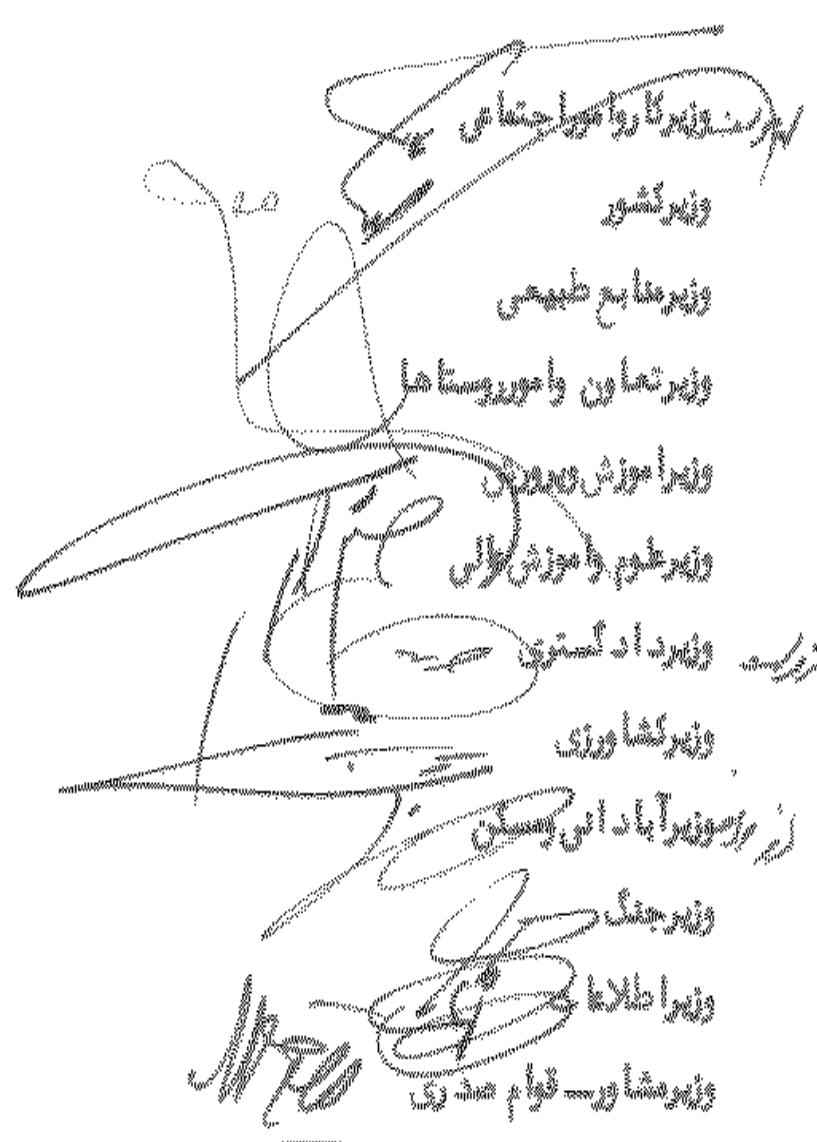 وزیر کار و امور اجتماعی
وزیر کشور
وزیر منابع طبیعی
وزیر تعاون و امور روستاها
وزیر اموزش و پرورش
وزیر علوم و اموزش عالی
وزیر دادگستری
وزیر کشاورزی
وزیر آبادانی و مسکن
وزیر جنگ
وزیر اطلاعات
وزیر مشاور – قوام صدری